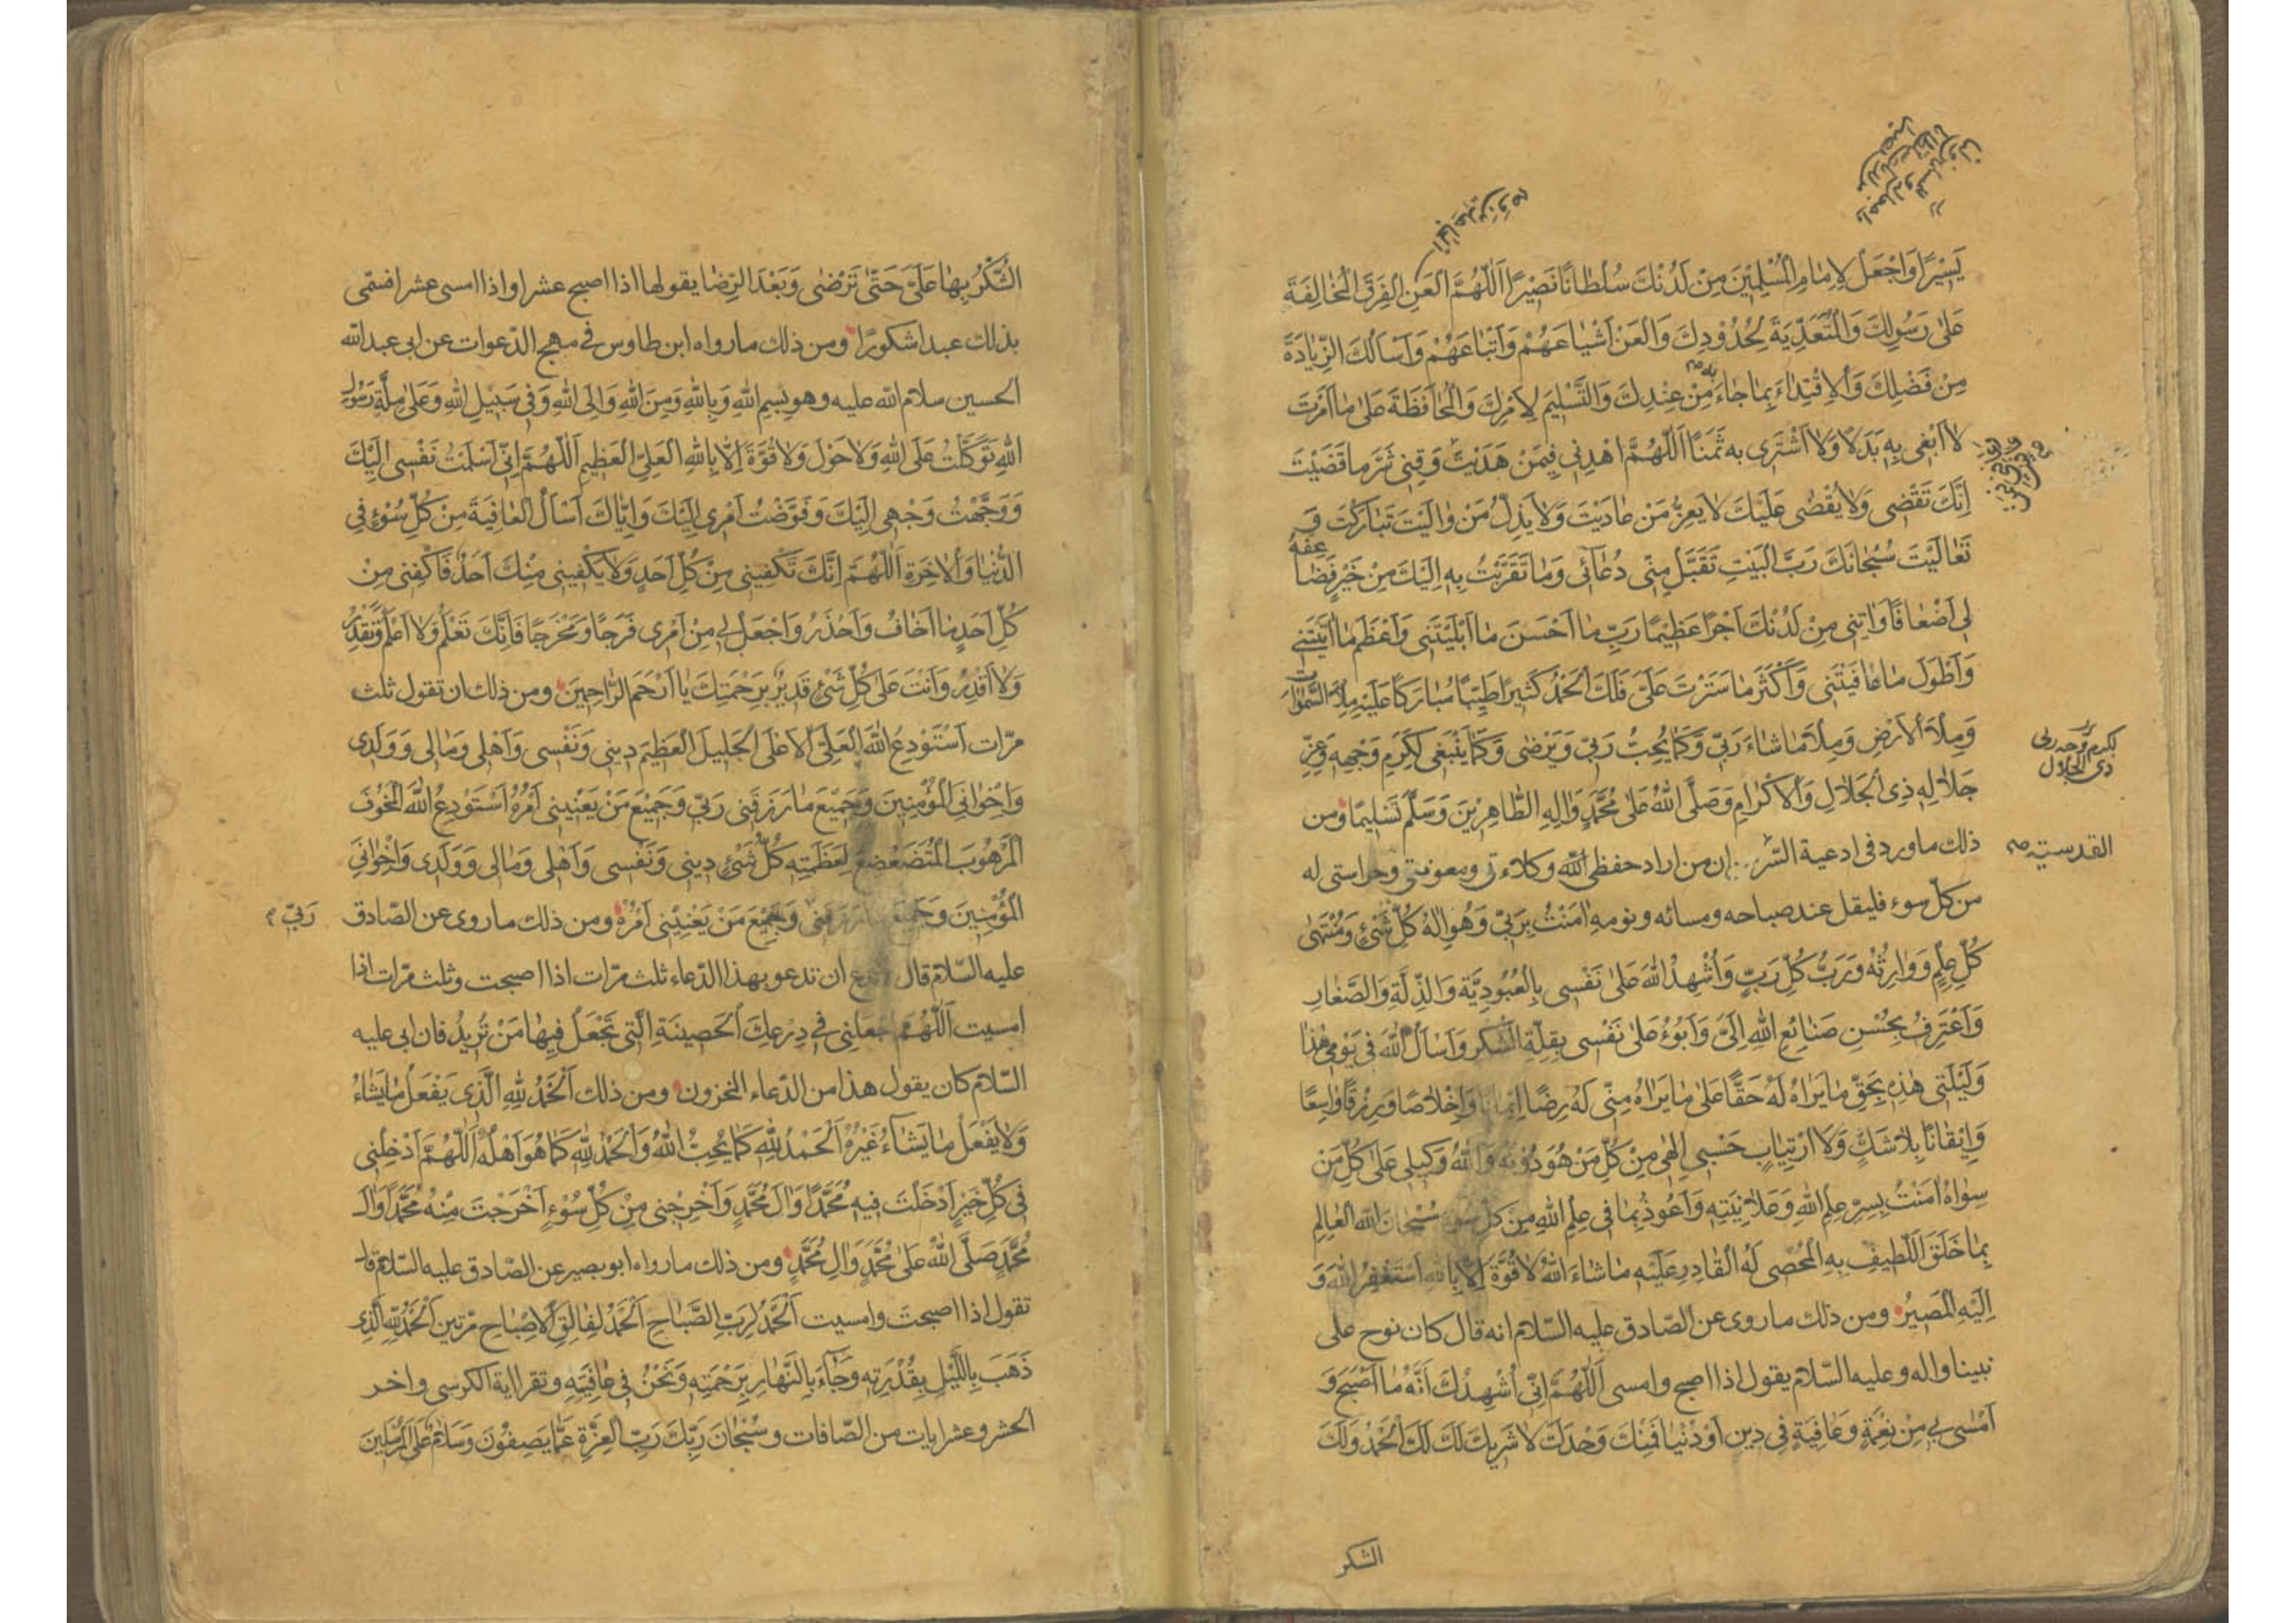 يَسِيْرًا وَاجْعَلْ لِاِمَامِ الْمُسْلِمِيْنَ مِنْ لَدُنْكَ سُلْطَانًا نَصِيْرًا اَللّٰهُمَّ الْعَنِ الْفِرَقَ الْمُخَالِفَةَ
عَلٰى رَسُولِكَ وَالْمُتَعَدِّيَةَ لِحُدُوْدِكَ وَالْعَنْ اَشْيَاعَهُمْ وَاَتْبَاعَهُمْ وَاَسْأَلُكَ الزِّيَادَةَ
مِنْ فَضْلِكَ وَالْاِقْتِدَاءَ بِمَا جَاءَ مِنْ عِنْدِكَ وَالتَّسْلِيْمَ لِاَمْرِكَ وَالْمُحَافَظَةَ عَلٰى مَا اَمَرْتَ
لَا اَبْغِى بِهِ بَدَلًا وَلَا اَشْتَرِى بِه ثَمَنًا اَللّٰهُمَّ اهْدِنِى فِيمَنْ هَدَيْتَ وَقِنِى شَرَّ مَا قَضَيْتَ
اِنَّكَ تَقْضِى وَلَا يُقْضٰى عَلَيْكَ لَا يَعِزُّ مَنْ عَادَيْتَ وَلَا يَذِلُّ مَنْ وَالَيْتَ تَبَارَكْتَ وَ
تَعَالَيْتَ سُبْحَانَكَ رَبَّ الْبَيْتِ تَقَبَّلْ مِنِّى دُعَائِى وَمَا تَقَرَّبْتُ بِهِ اِلَيْكَ مِنْ خَيْرٍ فَضَاعِفْهُ
لِى اَضْعَافًا وَاٰتِنِى مِنْ لَدُنْكَ اَجْرًا عَظِيْمًا رَبِّ مَا اَحْسَنَ مَا اَبْلَيْتَنِى وَاَعْظَمَ مَا اٰتَيْتَنِى
وَاَطْوَلَ مَا عَافَيْتَنِى وَاَكْثَرَ مَا سَتَرْتَ عَلَىَّ فَلَكَ الْحَمْدُ كَثِيْرًا طَيِّبًا مُبَارَكًا عَلَيْهِ مِلْأَ السَّمٰوَاتِ
وَمِلْأَ الْاَرْضِ وَمِلْأَ مَا شَاءَ رَبِّى وَكَمَا يُحِبُّ رَبِّى وَيَرْضٰى وَكَمَا يَنْبَغِى لِكَرَمِ وَجْهِهِ وَعِزِّ
بكرم وجه ربى
ذى الجلال
جَلَالِهِ ذِى الْجَلَالِ وَالْاِكْرَامِ وَصَلَّى اللّٰهُ عَلٰى مُحَمَّدٍ وَاٰلِهِ الطَّاهِرِيْنَ وَسَلَّمَ تَسْلِيمًا ومن
ذلك ما ورد فى ادعية السّر ان من اراد حفظى اللّٰه وكلاءتى ومعونتى وحراستى له
القدسيته صح
من كلّ سوء فليقل عند صباحه ومسائه ونومه اٰمَنْتُ بِرَبِّى وَهُوَ اِلٰهُ كُلِّ شَىْءٍ وَمُنْتَهٰى
كُلِّ عِلْمٍ وَوَارِثُهُ وَرَبُّ كُلِّ رَبٍّ وَاُشْهِدُ اللّٰهَ عَلٰى نَفْسِى بِالْعُبُودِيَّةِ وَالذِّلَّةِ وَالصَّغَارِ
وَاَعْتَرِفُ بِحُسْنِ صَنَائِعِ اللّٰهِ اِلَىَّ وَاَبُوْءُ عَلٰى نَفْسِى بِقِلَّةِ الشُّكْرِ وَاَسْأَلُ اللّٰهَ فِى يَوْمِى هٰذَا
وَلَيْلَتِى هٰذِهِ بِحَقِّ مَا يَرَاهُ لَهُ حَقًّا عَلٰى مَا يَرَاهُ مِنِّى لَهُ رِضًا اِيْمَانًا وَاِخْلَاصًا وَرِزْقًا وَاسِعًا
وَاِيْقَانًا بِلَا شَكٍّ وَلَا ارْتِيَابٍ حَسْبِى اِلٰهِى مِنْ كُلِّ مَنْ هُوَ دُوْنَهُ وَاللّٰهُ وَكِيلِى عَلٰى كُلِّ مَنْ
سِوَاهُ اٰمَنْتُ بِسِرِّ عِلْمِ اللّٰهِ وَعَلَانِيَتِهِ وَاَعُوْذُ بِمَا فِى عِلْمِ اللّٰهِ مِنْ كُلِّ سُوْءٍ سُبْحَانَ اللّٰهِ الْعَالِمِ
بِمَا خَلَقَ اللَّطِيفِ بِهِ الْمُحْصِى لَهُ الْقَادِرِ عَلَيْهِ مَا شَاءَ اللّٰهُ لَا قُوَّةَ اِلَّا بِاللّٰهِ اَسْتَغْفِرُ اللّٰهَ وَ
اِلَيْهِ الْمَصِيْرُ ومن ذلك ما روى عن الصّادق عليه السّلام انه قال كان نوح على
نبينا واله وعليه السّلام يقول اذا اصبح وامسى اَللّٰهُمَّ اِنِّى اُشْهِدُكَ اَنَّهُ مَا اَصْبَحَ وَ
اَمْسٰى بِى مِنْ نِعْمَةٍ وَعَافِيَةٍ فِى دِينٍ اَوْ دُنْيَا فَمِنْكَ وَحْدَكَ لَا شَرِيكَ لَكَ لَكَ الْحَمْدُ وَلَكَ
الشكر
الشُّكْرُ بِهَا عَلَىَّ حَتّٰى تَرْضٰى وَبَعْدَ الرِّضَا يقولها اذا اصبح عشرا واذا امسى عشرا فسمّى
بذلك عبدا شكورًا ومن ذلك ما رواه ابن طاوس فى مهج الدّعوات عن ابى عبد اللّٰه
الحسين سلام اللّٰه عليه وهو بِسْمِ اللّٰهِ وَبِاللّٰهِ وَمِنَ اللّٰهِ وَاِلَى اللّٰهِ وَفِى سَبِيْلِ اللّٰهِ وَعَلٰى مِلَّةِ رَسُوْلِ
اللّٰهِ تَوَكَّلْتُ عَلَى اللّٰهِ وَلَا حَوْلَ وَلَا قُوَّةَ اِلَّا بِاللّٰهِ الْعَلِىِّ الْعَظِيْمِ اَللّٰهُمَّ اِنِّى اَسْلَمْتُ نَفْسِى اِلَيْكَ
وَوَجَّهْتُ وَجْهِى اِلَيْكَ وَفَوَّضْتُ اَمْرِى اِلَيْكَ وَاِيَّاكَ اَسْأَلُ الْعَافِيَةَ مِنْ كُلِّ سُوْءٍ فِى
الدُّنْيَا وَالْاٰخِرَةِ اَللّٰهُمَّ اِنَّكَ تَكْفِينِى مِنْ كُلِّ اَحَدٍ وَلَا يَكْفِينِى مِنْكَ اَحَدٌ فَاكْفِنِى مِنْ
كُلِّ اَحَدٍ مَا اَخَافُ وَاَحْذَرُ وَاجْعَلْ لِى مِنْ اَمْرِى فَرَجًا وَمَخْرَجًا فَاِنَّكَ تَعْلَمُ وَلَا اَعْلَمُ وَتَقْدِرُ
وَلَا اَقْدِرُ وَاَنْتَ عَلٰى كُلِّ شَىْءٍ قَدِيْرٌ بِرَحْمَتِكَ يَا اَرْحَمَ الرَّاحِمِيْنَ ومن ذلك ان تقول ثلث
مرّات اَسْتَوْدِعُ اللّٰهَ الْعَلِىَّ الْاَعْلَى الْجَلِيلَ الْعَظِيْمَ دِينِى وَنَفْسِى وَاَهْلِى وَمَالِى وَوَلَدِى
وَاِخْوَانِى الْمُؤْمِنِينَ وَجَمِيْعَ مَا رَزَقَنِى رَبِّى وَجَمِيْعَ مَنْ يَعْنِينِى اَمْرُهُ اَسْتَوْدِعُ اللّٰهَ الْمَخُوْفَ
الْمَرْهُوبَ الْمُتَضَعْضِعَ لِعَظَمَتِهِ كُلُّ شَىْءٍ دِينِى وَنَفْسِى وَاَهْلِى وَمَالِى وَوَلَدِى وَاِخْوَانِىَ
الْمُؤْمِنِينَ وَجَمِيْعَ مَا رَزَقَنِى وَجَمِيْعَ مَنْ يَعْنِيْنِى اَمْرُهُ ومن ذلك ما روى عن الصّادق
رَبِّى
عليه السّلام قال ان تدعو بهذا الدّعاء ثلث مرّات اذا اصبحت وثلث مرّات اذا
امسيت اَللّٰهُمَّ اجْعَلْنِى فِى دِرْعِكَ الْحَصِينَةِ الَّتِى تَجْعَلُ فِيهَا مَنْ تُرِيدُ فان ابى عليه
السّلام كان يقول هذا من الدّعاء المخزون ومن ذلك اَلْحَمْدُ لِلّٰهِ الَّذِى يَفْعَلُ مَا يَشَاءُ
وَلَا يَفْعَلُ مَا يَشَاءُ غَيْرُهُ اَلْحَمْدُ لِلّٰهِ كَمَا يُحِبُّ اللّٰهُ وَالْحَمْدُ لِلّٰهِ كَمَا هُوَ اَهْلُهُ اَللّٰهُمَّ اَدْخِلْنِى
فِى كُلِّ خَيْرٍ اَدْخَلْتَ فِيهِ مُحَمَّدًا وَاٰلَ مُحَمَّدٍ وَاَخْرِجْنِى مِنْ كُلِّ سُوْءٍ اَخْرَجْتَ مِنْهُ مُحَمَّدًا وَاٰلَ
مُحَمَّدٍ صَلَّى اللّٰهُ عَلٰى مُحَمَّدٍ وَاٰلِ مُحَمَّدٍ ومن ذلك ما رواه ابو بصير عن الصّادق عليه السّلام قال
تقول اذا اصبحت وامسيت اَلْحَمْدُ لِرَبِّ الصَّبَاحِ اَلْحَمْدُ لِفَالِقِ الْاِصْبَاحِ مرّتين اَلْحَمْدُ لِلّٰهِ الَّذِى
ذَهَبَ بِاللَّيْلِ بِقُدْرَتِهِ وَجَاءَ بِالنَّهَارِ بِرَحْمَتِهِ وَنَحْنُ فِى عَافِيَتِهِ وتقرا اية الكرسى واخر
الحشر وعشر ايات من الصّافات وسُبْحَانَ رَبِّكَ رَبِّ الْعِزَّةِ عَمَّا يَصِفُوْنَ وَسَلَامٌ عَلَى الْمُرْسَلِيْنَ